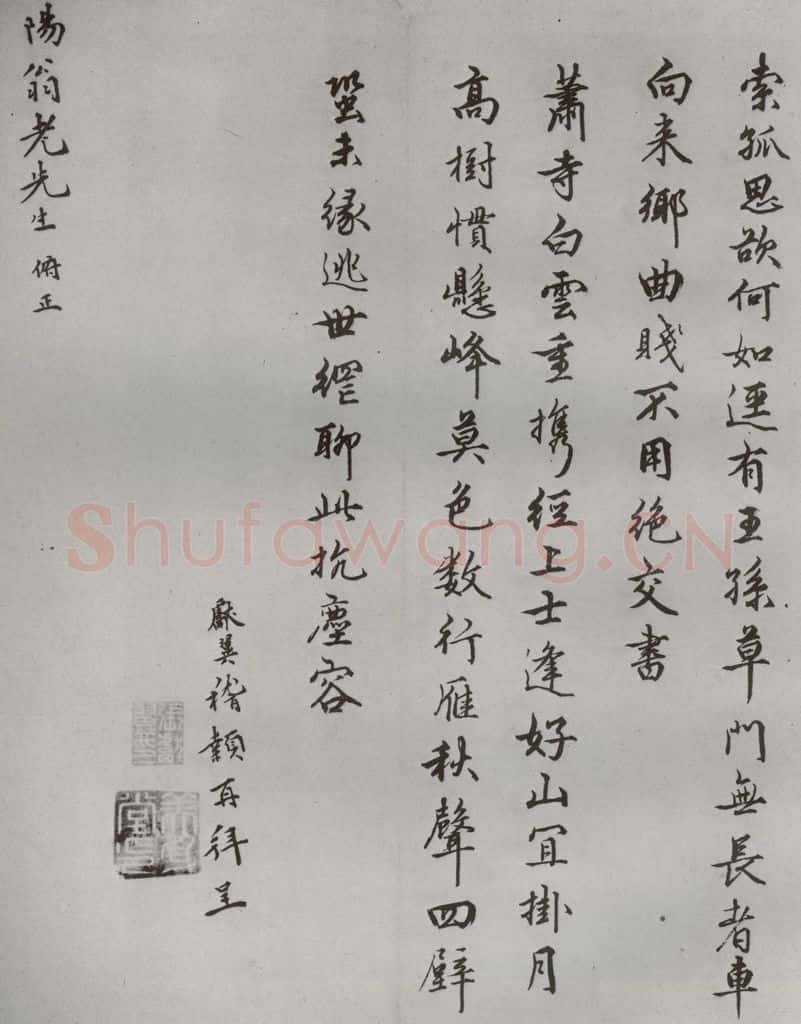 索孤思欲何如逕有王孫草門無長者車
向来鄉曲賤不用絶交書
蕭寺白雲重携經上士逢好山宜掛月
高樹慣懸峰莫色数行雁秋聲四壁
蛩未緣逃世網聊此抗塵容
獻翼稽顙再拜呈
陽翁老先生 俯正
Shufawang.CN